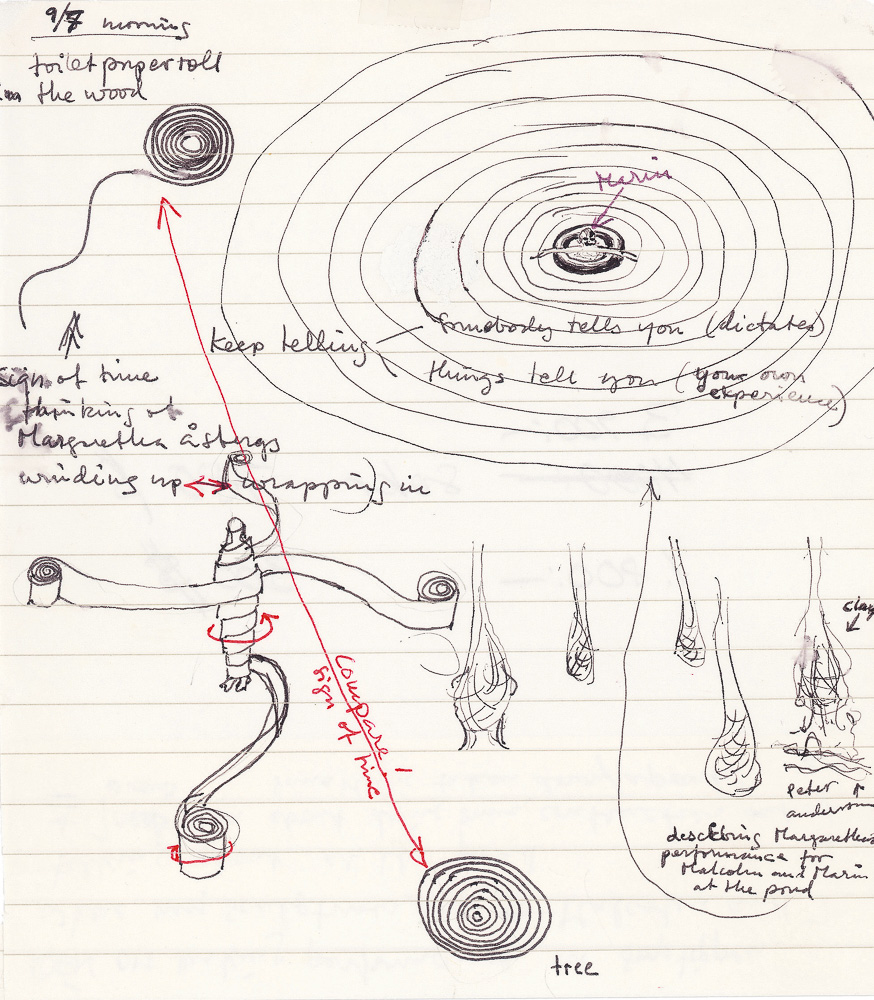 9/7 morning
toilet paper roll
in the wood
Marin
keep telling
somebody tells you (dictates)
things tell you (your own
experience)
sign of time
thinking of
Margaretha åsbergs
winding up
wrapping) in
compare!
sign of time
clay
Peter
anderson
describing Margarethas
performance for
Malcolm and Marin
at the pond
tree